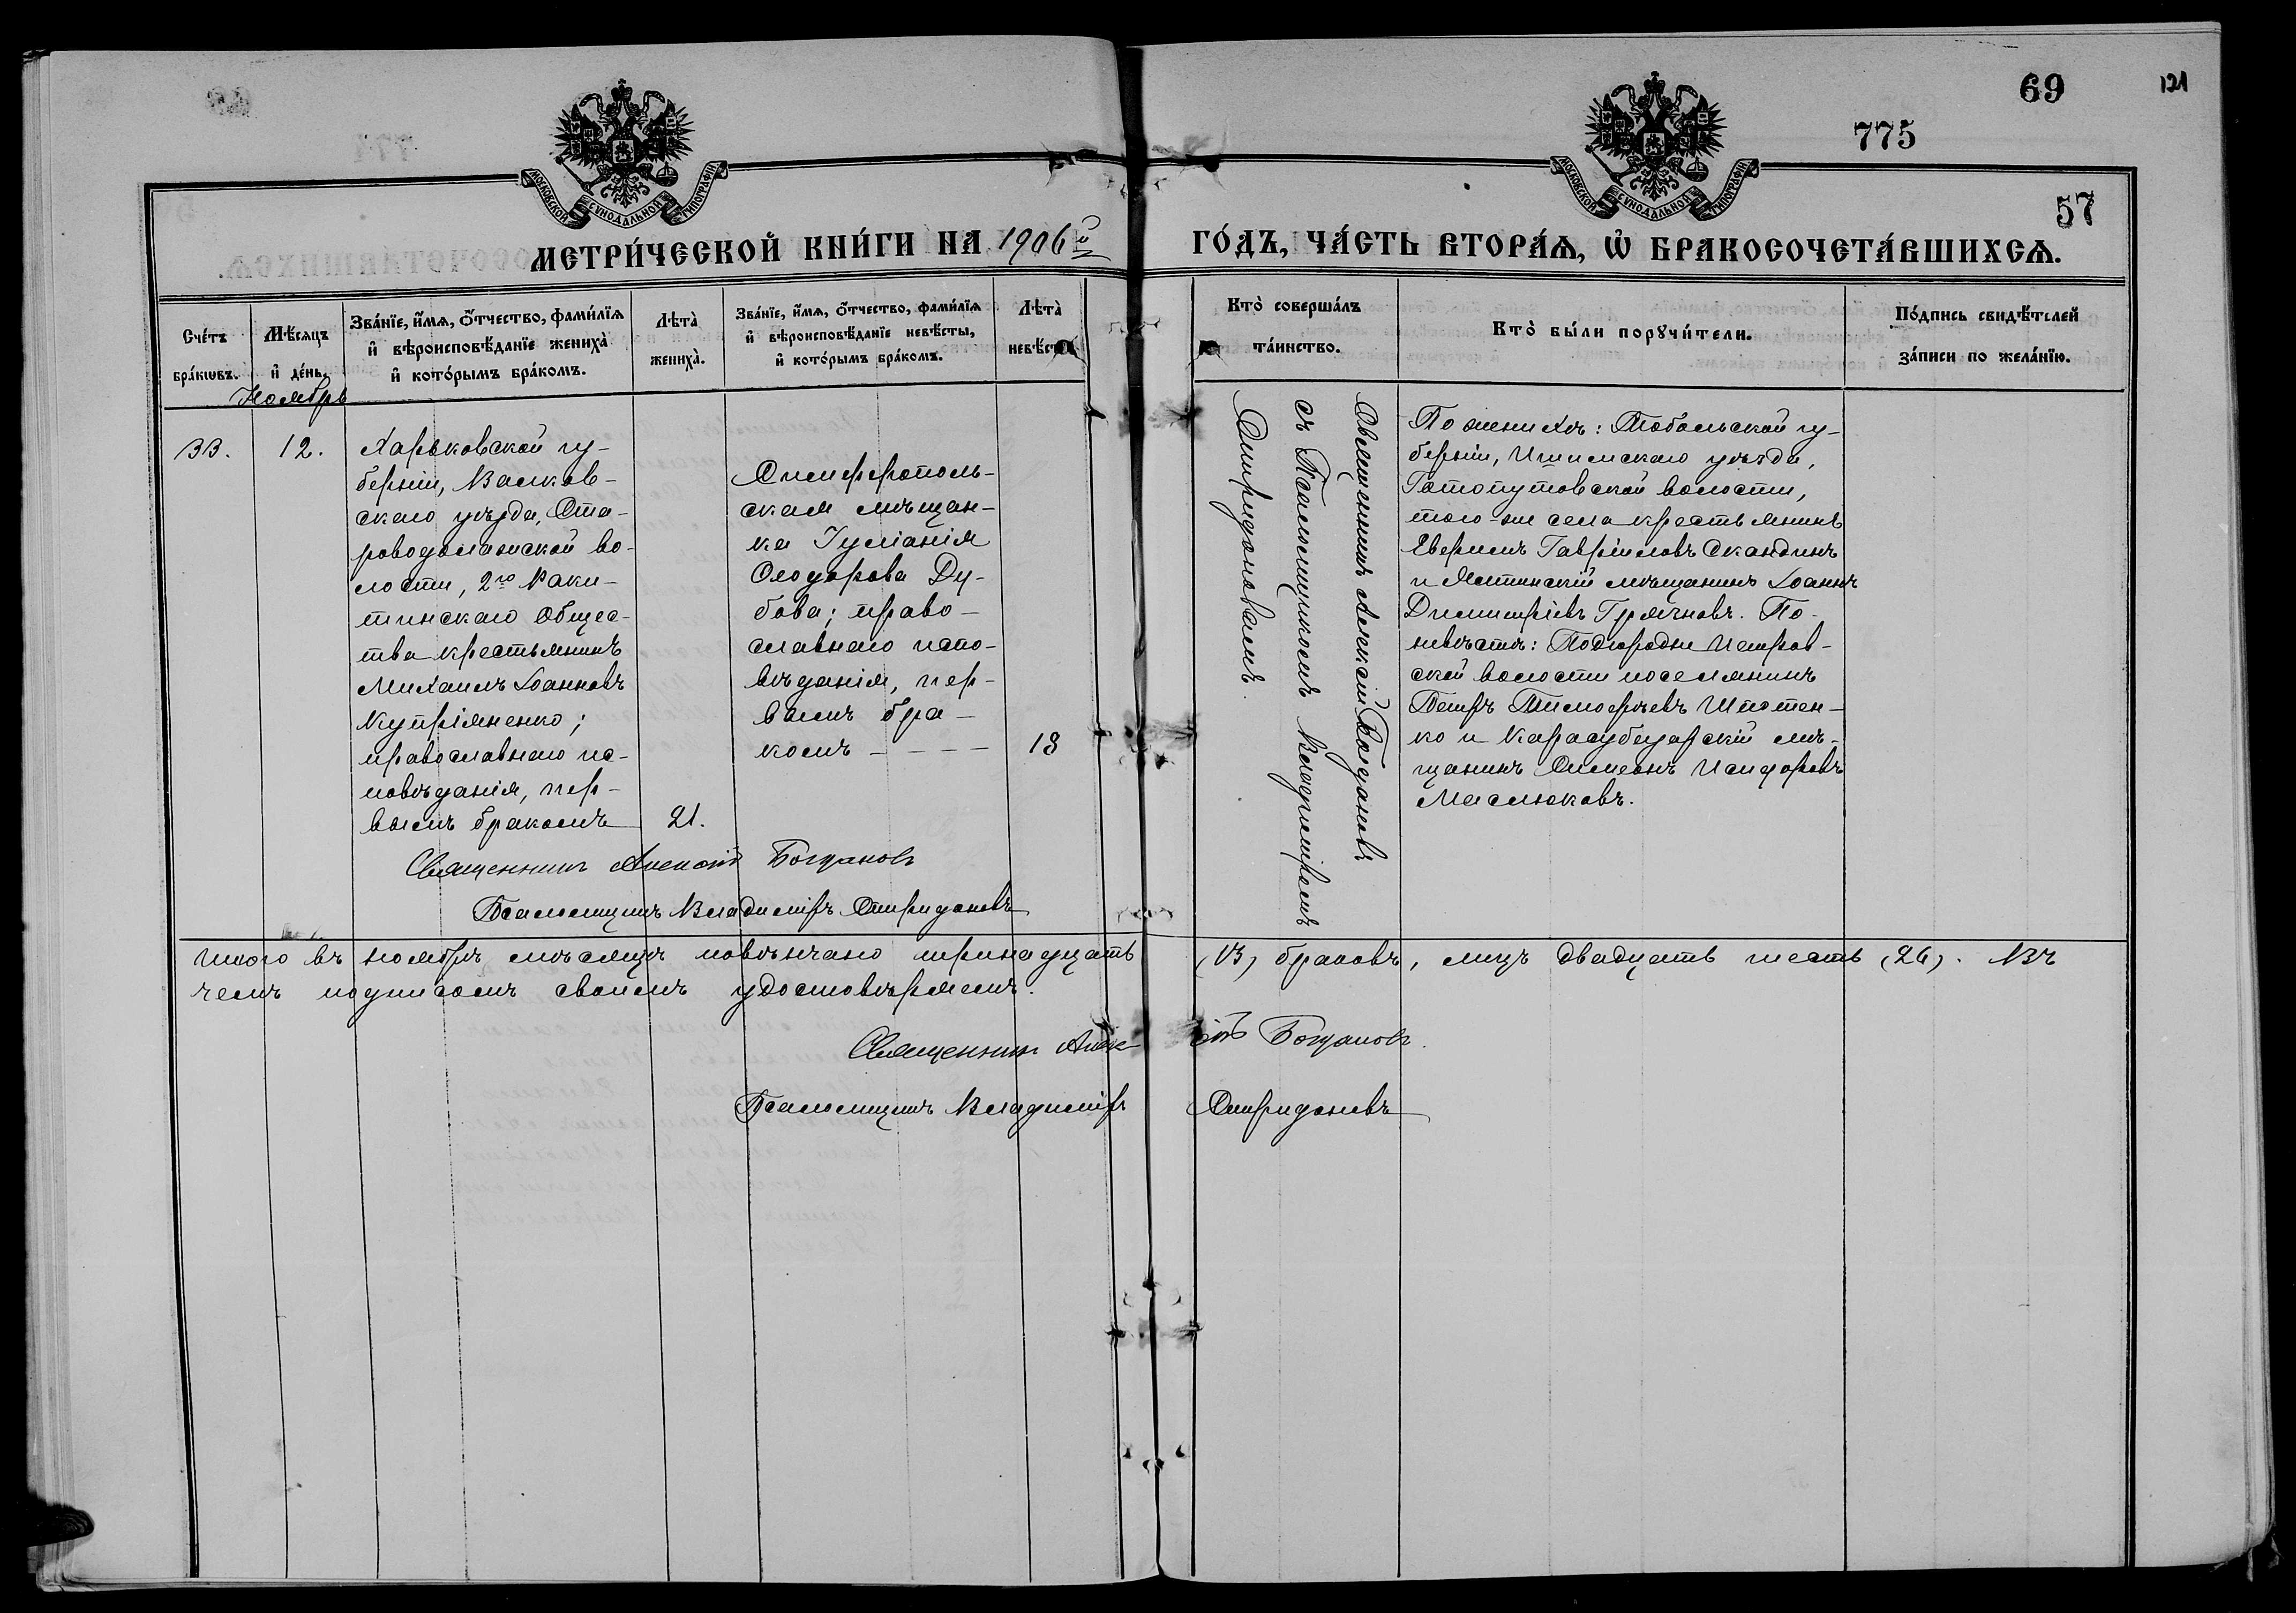 69
121
775
57
МОСКОВСКОЙ СѴНОДАЛЬНОЙ ТИПОГРАФІИ
МОСКОВСКОЙ СѴНОДАЛЬНОЙ ТИПОГРАФІИ
МЕТРИ́ЧЕСКОЙ КНИ́ГИ НА 1906й
ГО́ДЪ, ЧА́СТЬ ВТОРА́Ѧ, Ѡ҆ БРАКОСОЧЕТА́ВШИХСѦ.
Сче́тъ
бра́кѡвъ.
Мѣ́сяцъ
и҆ де́нь.
Зва́нїе, и҆́мя, ѻ҆́тчество, фами́лїя
и҆ вѣроисповѣ́данїе жениха̀
и҆ кото́рымъ бра́комъ.
Лѣта̀
жениха̀.
Зва́нїе, и҆́мя, ѻ҆́тчество, фами́лїя
и҆ вѣроисповѣ́данїе невѣ́сты,
и҆ кото́рымъ бра́комъ.
Лѣта̀
невѣ́сты
Кто̀ соверша́лъ
та́инство.
Кто̀ бы́ли порꙋчи́тели.
По́дпись свидѣ́телей
за́писи по жела́нїю.
Ноябрь
33.
12.
Харьковской гу-
берніи, Валков-
скаго уѣзда, Ста-
роводолажской во-
лости, 2го Раки-
тинскаго Общес-
тва крестьянинъ
Михаилъ Іоанновъ
Купріяненко;
православнаго ис-
повѣданія, пер-
вымъ бракомъ
21.
Симферополь-
ская мѣщан-
ка Іуліанія
Ѳеодорова Ду-
бова; право-
славнаго испо-
вѣданія, пер-
вымъ бра-
комъ - - - -
18
Священникъ Алексій Богдановъ
съ Псаломщикомъ Владиміромъ
Спиридоновымъ.
По женихѣ: Тобольской гу-
берніи, Ишимскаго уѣзда,
Готопутовской волости,
того-же села крестьянинъ
Гавріиловъ Скандинъ
и Ялтинскій мѣщанинъ Іоаннъ
Димитріевъ По-
невѣстѣ: Подгородне Петров-
ской волости поселянинъ
Петръ Тимофѣевъ
ко и Карасубазарскій мѣ-
щанинъ Симеонъ Исидоровъ
Маслюковъ.
Священникъ Алексій Богдановъ
Псаломщикъ Владиміръ Спиридоновъ
Итого въ ноябрѣ мѣсяцѣ повѣнчано тринадцать (13) браковъ, лицъ двадцать шесть (26). Въ
чемъ подписомъ своимъ удостовѣряемъ.
Священникъ Алексій Богдановъ.
Псаломщикъ Владиміръ Спиридоновъ